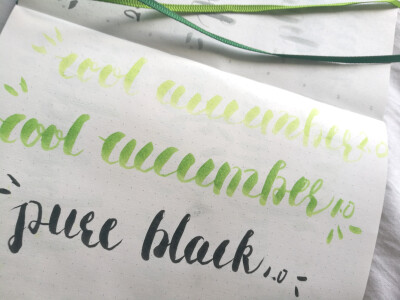 cool cucumber 1.0
cool cucumber 1.0
pure black 1.0